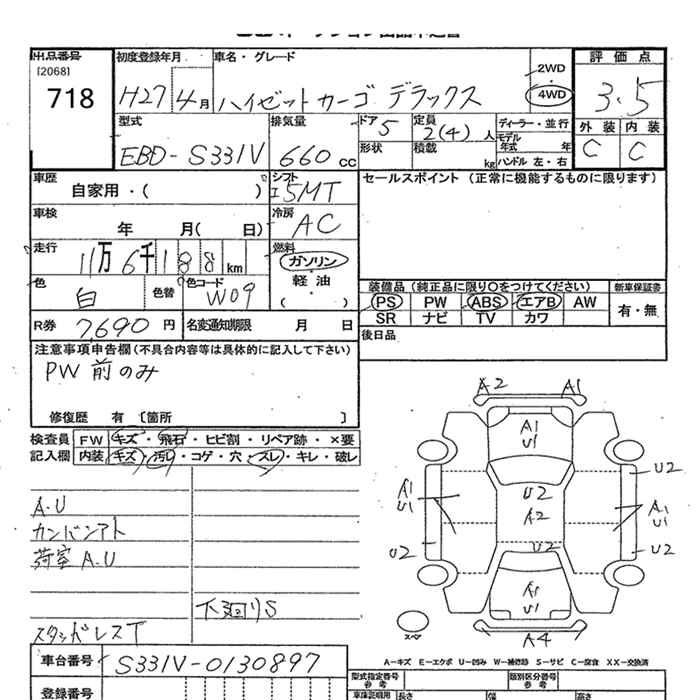 出品番号
[2068]
718
初度登録年月 車名・グレード
H27 4月 ハイゼットカーゴ デラックス
2WD
・
4WD
評価点
3.5
外装 内装
C C
型式 排気量 ドア 定員 ディーラー・並行
EBD-S331V 660cc 5 2(4)人 モデル年式 年
形状 積載 kg ハンドル 左・右
車歴 シフト
自家用・( ) I5MT
セールスポイント (正常に機能するものに限ります)
車検 冷房
年 月( 日) AC
走行 燃料
11万6千188km ガソリン
・
軽油
( )
色 色替 色コード
白 W09
装備品 (純正品に限り○をつけてください) 新車保証書
PS PW ABS エアB AW 有・無
SR ナビ TV カワ
R券 7,690円 名変通知期限 月 日
後日品
注意事項申告欄(不具合内容等は具体的に記入して下さい)
PW 前のみ
修復歴 有 [箇所 ]
検査員 FW キズ・飛石・ヒビ割・リペア跡・×要
記入欄 内装 キズ・汚レ・コゲ・穴・スレ・キレ・破レ
A.U
カンバンアト
荷室 A.U
下廻りS
スタッドレスT
A2 A1
A1
U1
U2
A1
U1
U2
A2
A1
U1
U2
U2
U2
U2
A1
U1
スペア
A4
A-キズ E-エクボ U-凹み W-補修跡 S-サビ C-腐食 XX-交換済
車台番号 S331V-0130897
型式指定番号
参考
類別区分番号
参考
登録番号
車庫証明用
参考
長さ 幅 高さ